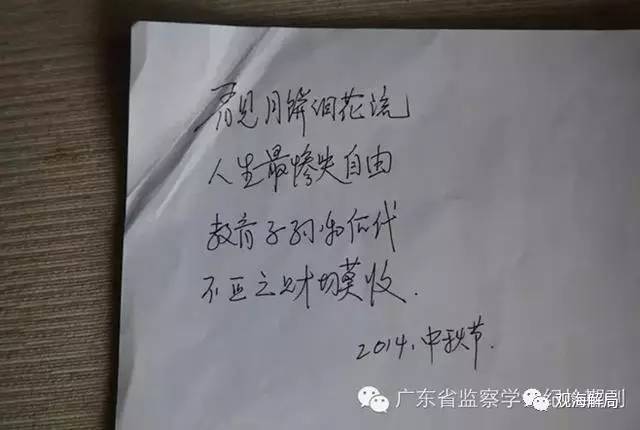 看见月饼泪花流
人生最惨失自由
教育子孙后代
不正之财切莫收.
2014.中秋节.
广东省监察学会纪检期刊
观海解局